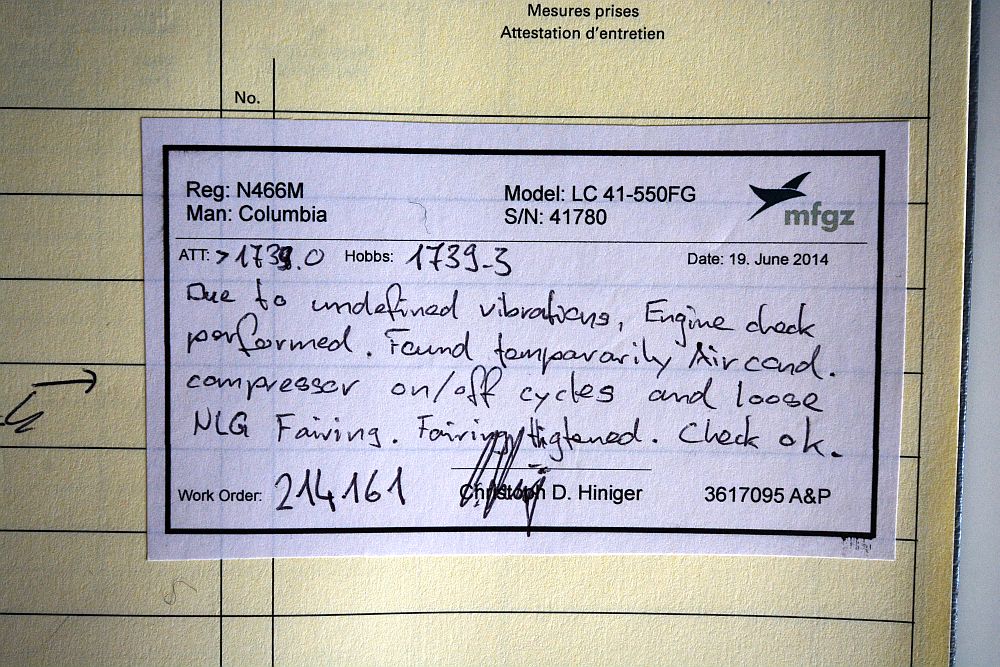 Mesures prises
Attestation d'entretien
No.
Reg: N466M
Model: LC 41-550FG
Man: Columbia
S/N: 41780
mfgz
ATT: >1739.0 Hobbs: 1739.3
Date: 19. June 2014
Due to undefined vibrations, Engine check
performed. Found temporarily Air cond.
compressor on/off cycles and loose
NLG Fairing. Fairing tigtened. Check ok.
Work Order: 214161
Christoph D. Hiniger
3617095 A&P